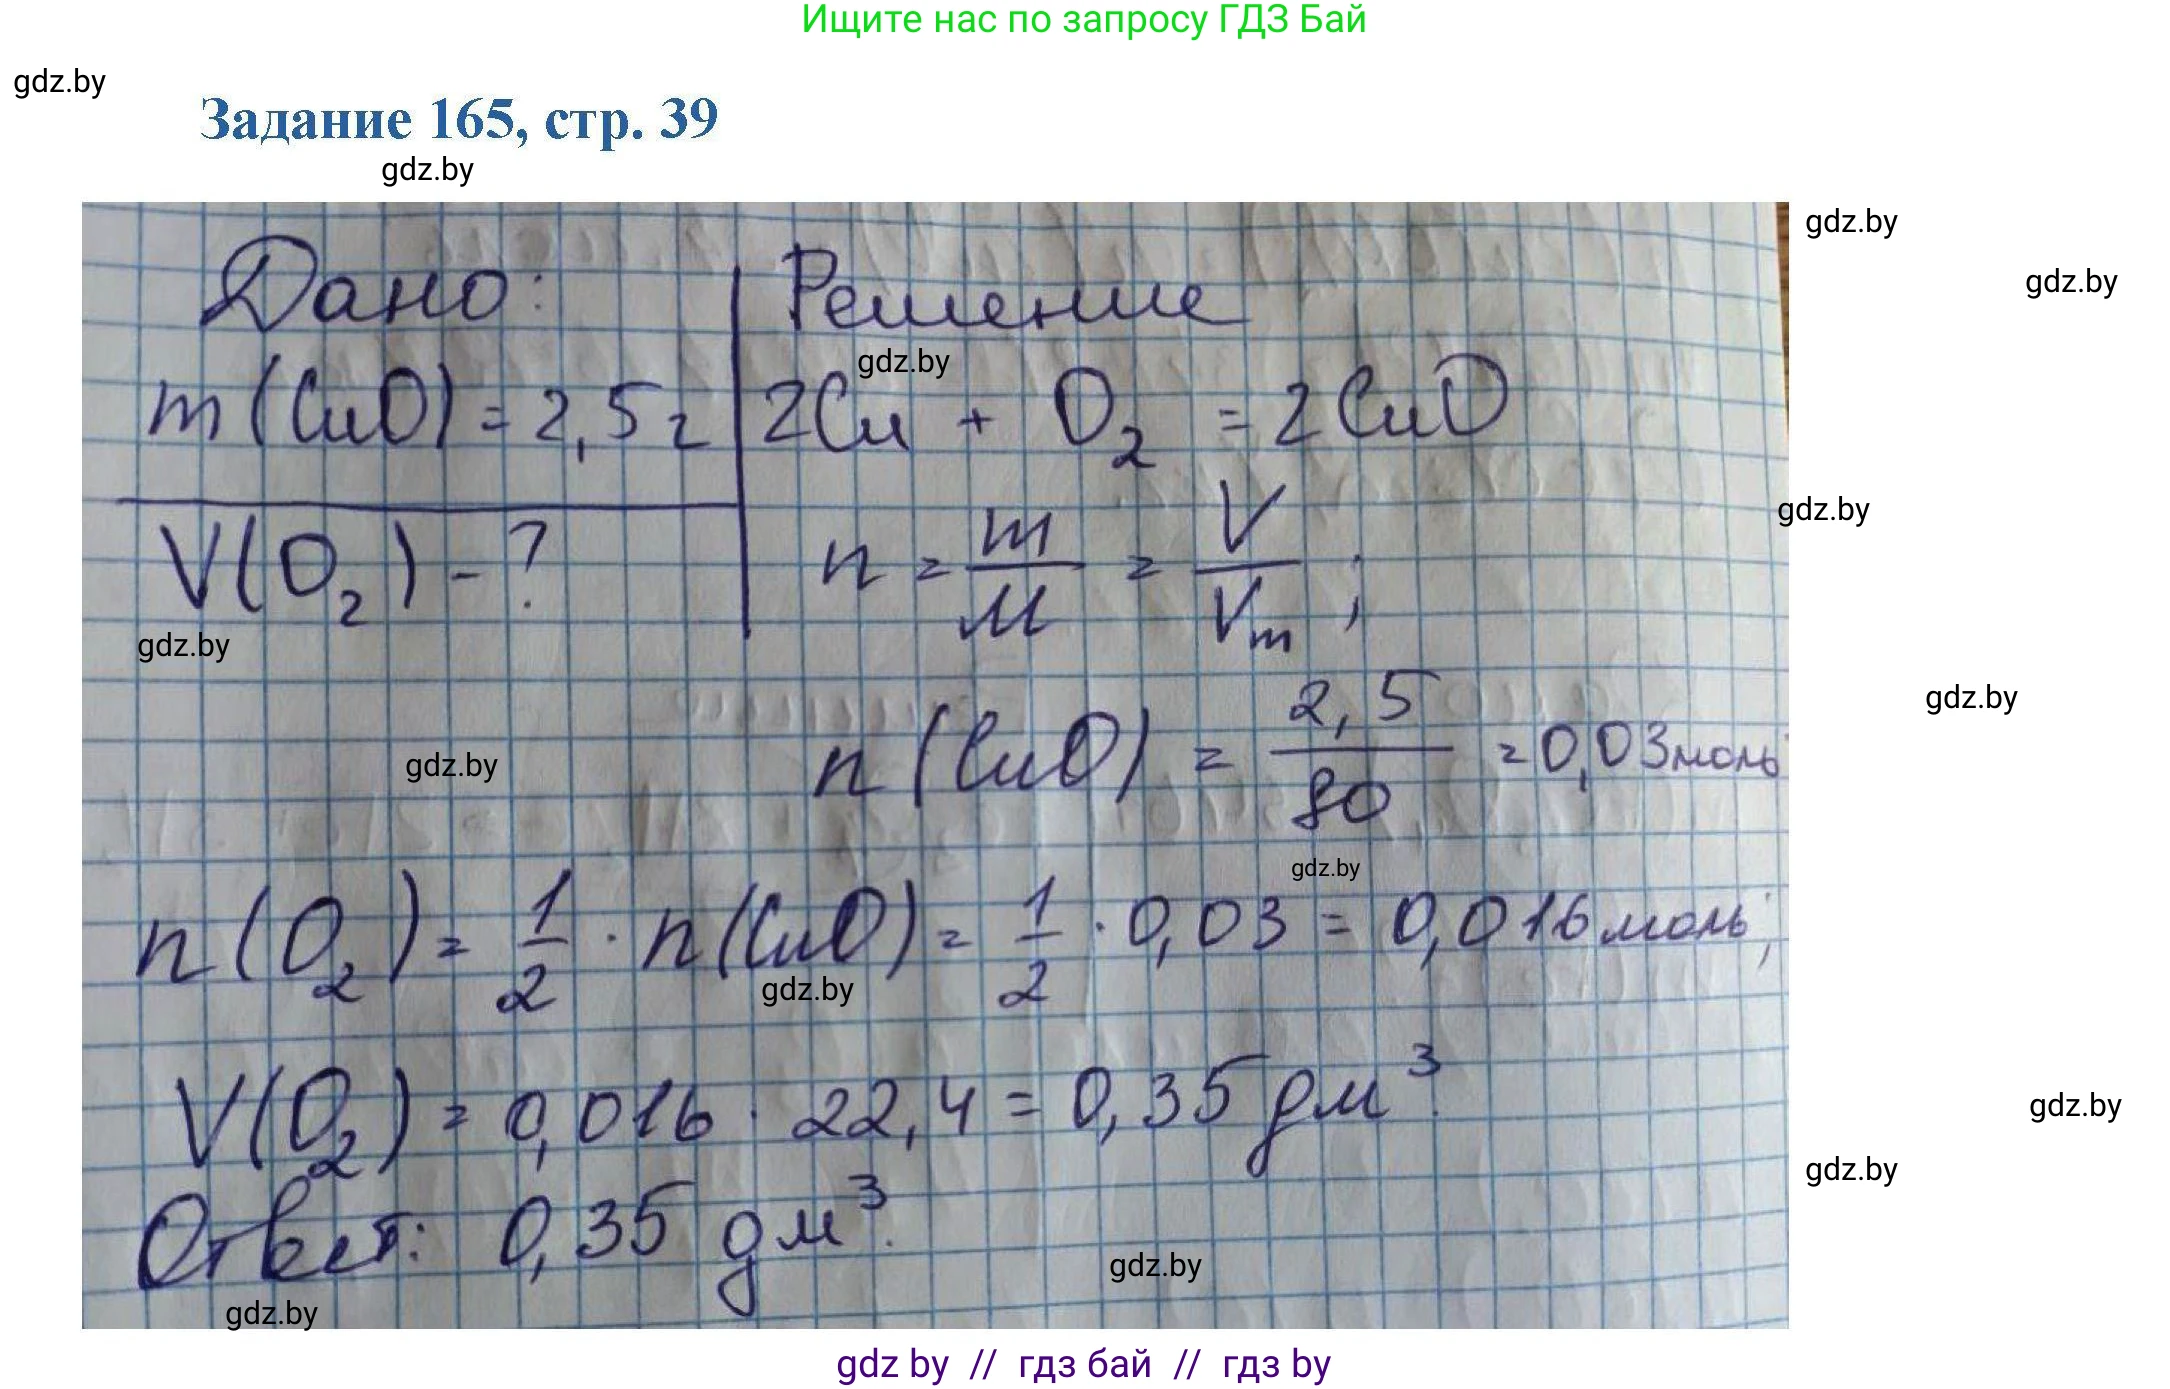 Ищите нас по запросу ГДЗ Бай
gdz.by
Задание 165, стр. 39
gdz.by
gdz.by
gdz.by
Дано: Решение
gdz.by
m(CuO) = 2,5 г 2Cu + O₂ = 2CuO
gdz.by
V(O₂) - ? n = m/M = V/Vm ;
gdz.by
gdz.by
n(CuO) = 2,5/80 = 0,03 моль
gdz.by
gdz.by
n(O₂) = 1/2 · n(CuO) = 1/2 · 0,03 = 0,016 моль;
gdz.by
V(O₂) = 0,016 · 22,4 = 0,35 дм³.
gdz.by
gdz.by
Ответ: 0,35 дм³.
gdz.by
gdz.by
gdz by // гдз бай // гдз by